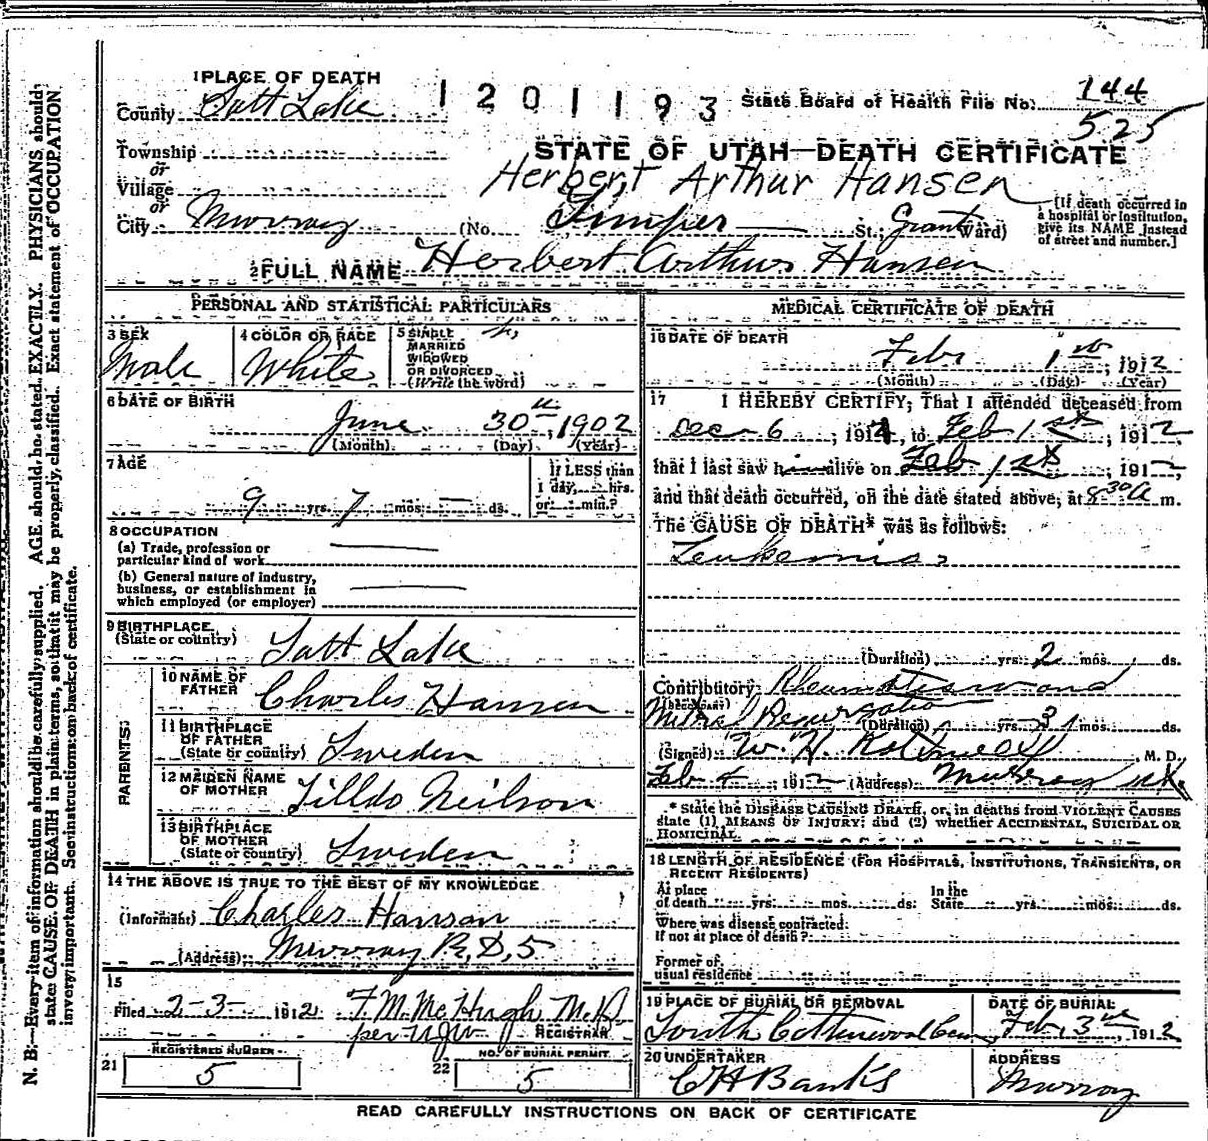 1 PLACE OF DEATH
County Salt Lake
1201193
State Board of Health File No. 144
525
Township
or
Village
or
City Murray
STATE OF UTAH—DEATH CERTIFICATE
Herbert Arthur Hansen
(No. St.; Grant Ward)
[If death occurred in a hospital or institution, give its NAME instead of street and number.]
2 FULL NAME Herbert Arthur Hansen
PERSONAL AND STATISTICAL PARTICULARS
3 SEX
Male
4 COLOR OR RACE
White
5 SINGLE
MARRIED
WIDOWED
OR DIVORCED
(Write the word)
6 DATE OF BIRTH
June 30th, 1902
(Month) (Day) (Year)
7 AGE
9 yrs. 7 mos. — ds.
If LESS than
1 day, hrs.
or min.?
8 OCCUPATION
(a) Trade, profession or
particular kind of work
(b) General nature of industry,
business, or establishment in
which employed (or employer)
9 BIRTHPLACE
(State or country) Salt Lake
PARENTS
10 NAME OF
FATHER Charles Hansen
11 BIRTHPLACE
OF FATHER
(State or country) Sweden
12 MAIDEN NAME
OF MOTHER Tilldo Neilson
13 BIRTHPLACE
OF MOTHER
(State or country) Sweden
14 THE ABOVE IS TRUE TO THE BEST OF MY KNOWLEDGE
(Informant) Charles Hanson
(Address) Murray R.D. 5
15
Filed 2-3- 1912 F. M. McHugh M.D.
per REGISTRAR
REGISTERED NUMBER
21 5
NO. OF BURIAL PERMIT
22 5
MEDICAL CERTIFICATE OF DEATH
16 DATE OF DEATH
Feb 1st, 1912
(Month) (Day) (Year)
17 I HEREBY CERTIFY, That I attended deceased from
Dec 6, 1911, to Feb 1st, 1912,
that I last saw him alive on Feb 1st, 1912,
and that death occurred, on the date stated above, at 8 30 A m.
The CAUSE OF DEATH* was as follows:
Leukemia
(Duration) yrs. 2 mos. ds.
Contributory Rheumatism and
(SECONDARY)
Mitral Regurgitation
(Duration) yrs. 3 mos. ds.
(Signed) W. H. M. D.
Feb 4, 1912 (Address) Murray Ut.
* State the DISEASE CAUSING DEATH, or, in deaths from VIOLENT CAUSES
state (1) MEANS OF INJURY; and (2) whether ACCIDENTAL, SUICIDAL OR
HOMICIDAL.
18 LENGTH OF RESIDENCE (FOR HOSPITALS, INSTITUTIONS, TRANSIENTS, OR
RECENT RESIDENTS)
At place
of death yrs. mos. ds.
In the
State yrs. mos. ds.
Where was disease contracted:
If not at place of death?
Former or
usual residence
19 PLACE OF BURIAL OR REMOVAL
South Cottonwood Cem
DATE OF BURIAL
Feb 3rd, 1912
20 UNDERTAKER
C H Banks
ADDRESS
Murray
READ CAREFULLY INSTRUCTIONS ON BACK OF CERTIFICATE
N. B.—Every item of information should be carefully supplied. AGE should be stated EXACTLY. PHYSICIANS should
state CAUSE OF DEATH in plain terms, so that it may be properly classified. Exact statement of OCCUPATION
is very important. See instructions on back of certificate.